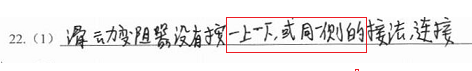 22.（1）滑动变阻器没有按一上一下,或同一侧的接法,连接